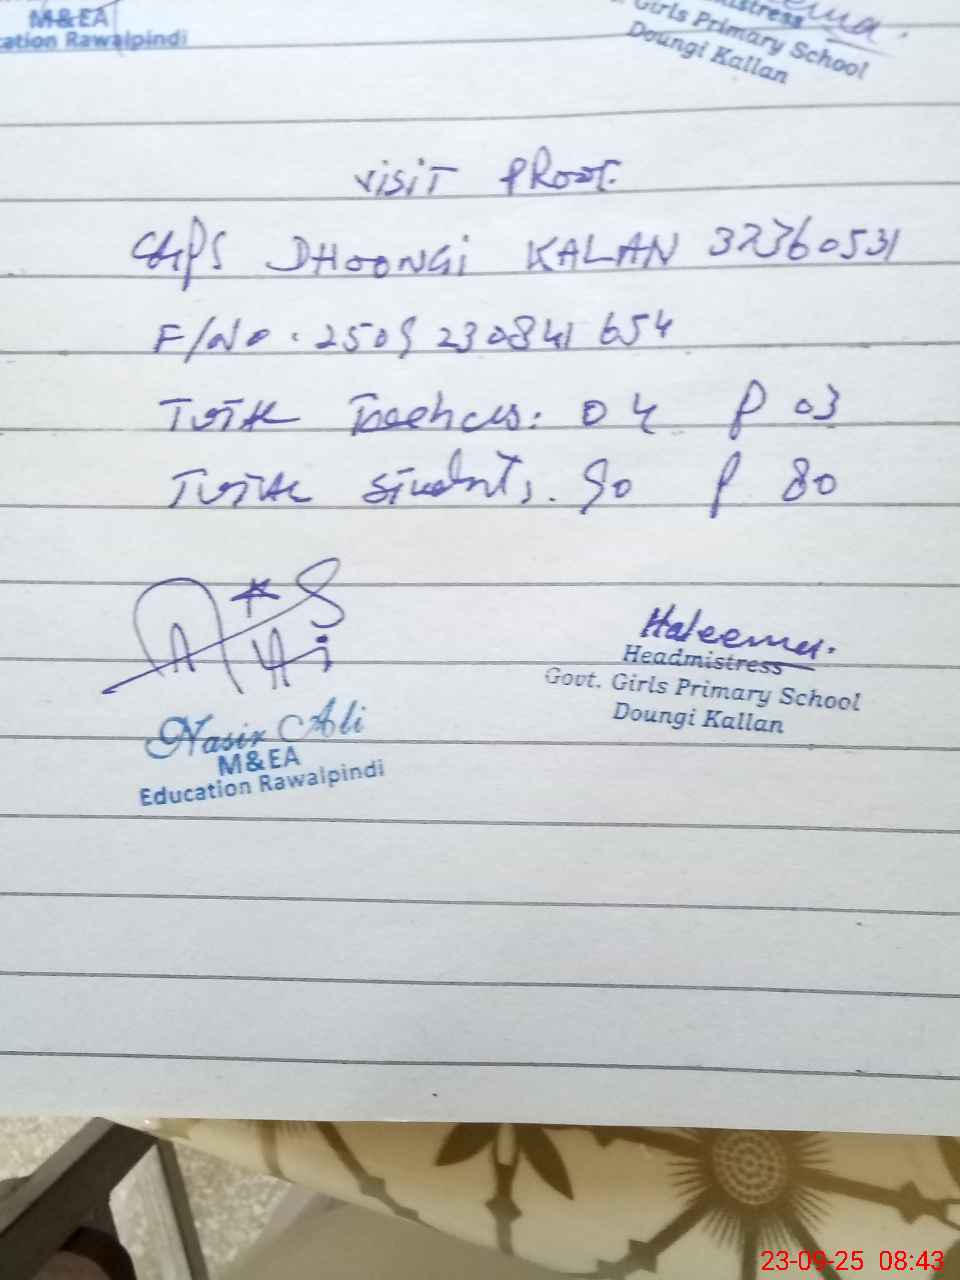 M&EA
cation Rawalpindi
Girls Primary School
Doungi Kallan
VISIT PROOF.
GGPS DHOONGI KALAN 37360531
F/No. 2509230841654
TOTAL Teachers: 04 P 03
TOTAL Students. 90 P 80
Haleema.
Headmistress
Govt. Girls Primary School
Doungi Kallan
Nasir Ali
M&EA
Education Rawalpindi
23-09-25 08:43